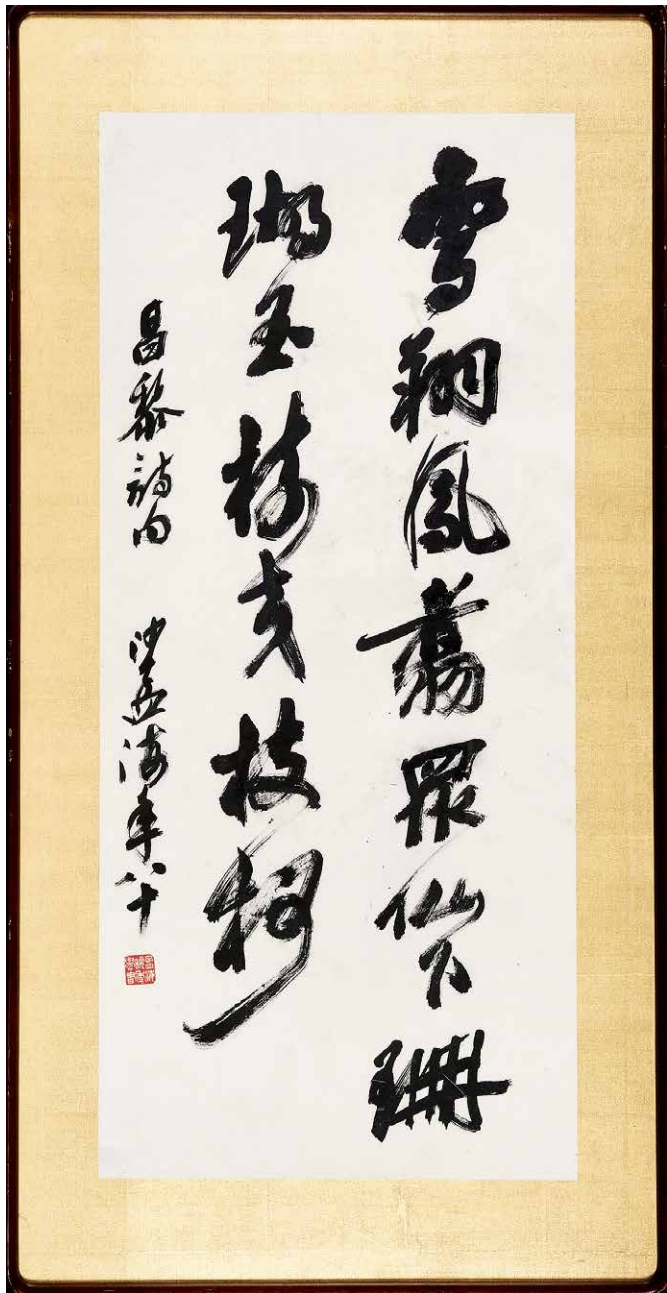 鸞翔鳳翥眾仙下珊
瑚碧樹交枝柯
昌黎詩句 沙孟海年八十